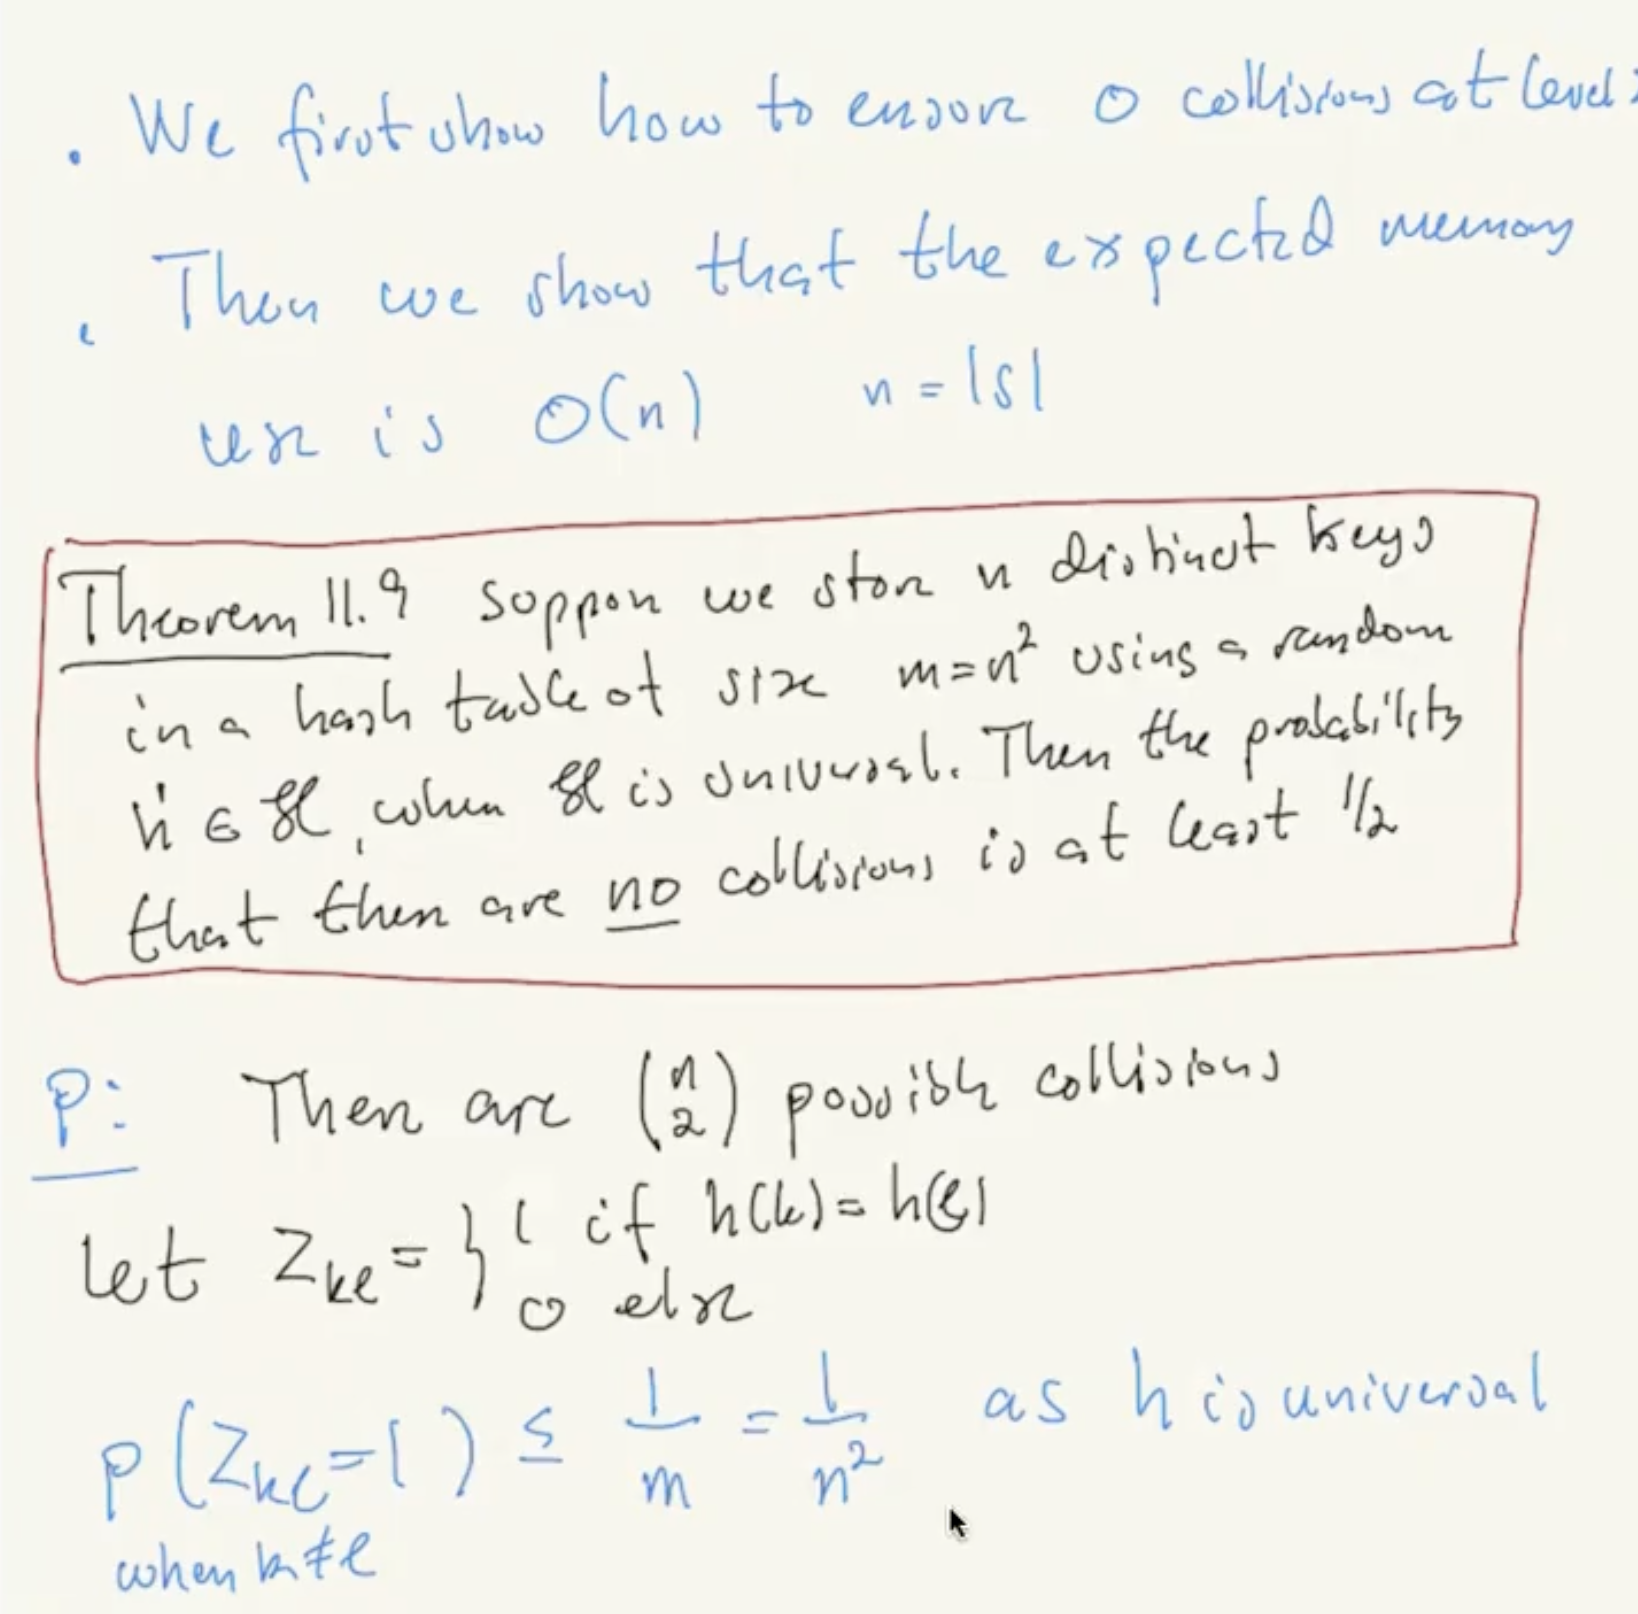 . We first show how to ensure 0 collisions at level 2
. Then we show that the expected memory
use is O(n) n = |S|
Theorem 11.9 Suppose we store n distinct keys
in a hash table of size m = n² using a random
h ∈ ℋ, when ℋ is universal. Then the probability
that there are no collisions is at least 1/2
P: There are (n 2) possible collisions
Let Z_kl = { 1 if h(k) = h(l)
0 else
p(Z_kl = 1) ≤ 1/m = 1/n² as h is universal
when k ≠ l